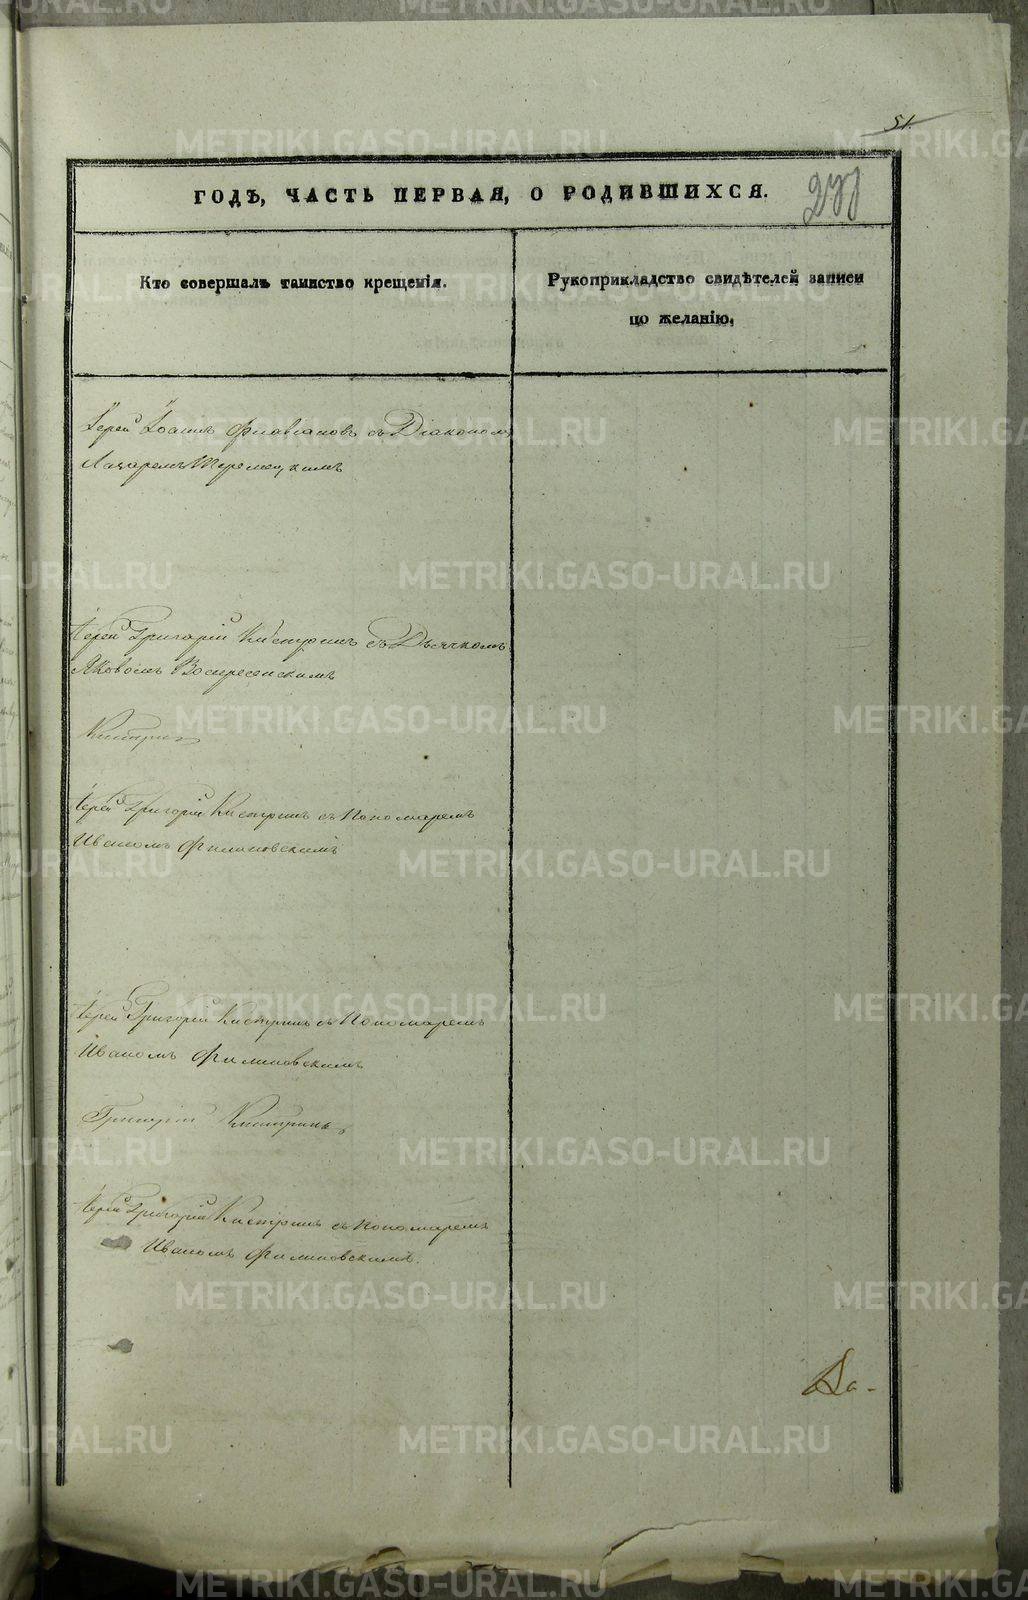 51.
277
ГОДЪ, ЧАСТЬ ПЕРВАЯ, О РОДИВШИХСЯ.
Кто совершалъ таинство крещенія.
Рукоприкладство свидѣтелей записи
по желанію.
Іерей Іоаннъ Флавіановъ съ Діакономъ
Лазаремъ
Іерей Григорій Кистринъ съ Дьячкомъ
Яковомъ Воскресенскимъ
Іерей Григорій Кистринъ съ Пономаремъ
Иваномъ Филиповскимъ
Іерей Григорій Кистринъ съ Пономаремъ
Иваномъ Филиповскимъ
Григорій Кистринъ
Іерей Григорій Кистринъ съ Пономаремъ
Иваномъ Филиповскимъ.
METRIKI.GASO-URAL.RU